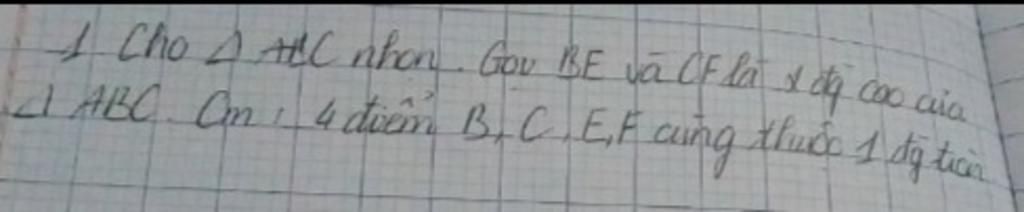 1 Cho Δ ABC nhọn. Gọi BE và CF là đg cao của
Δ ABC. Cm: 4 điểm B, C, E, F cùng thuộc 1 đg tròn